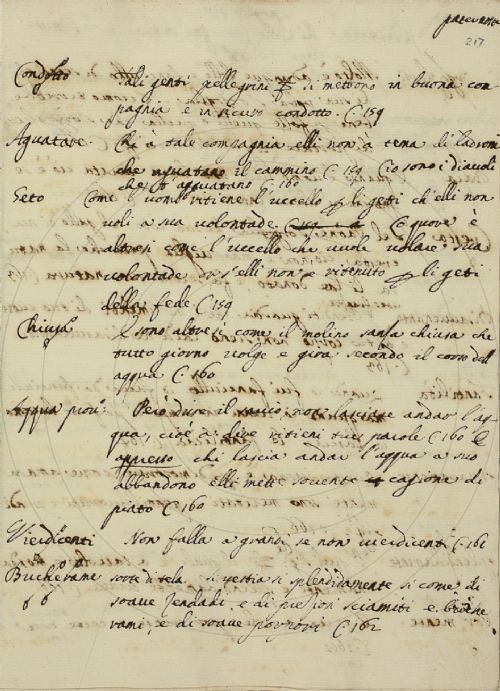 217
Condotto Tali genti pellegrini p si mettono in buona com
pagnia e in sicuro condotto. C. 159
Aguatare. Chi à tale compagnia elli non à tema di ladroni
che aguatano il cammino C. 159 Cio sono i diauoli
che aguatano C. 160
Geto Come l'uomo ritiene l'uccello p li geti ch'elli non
uoli a sua volontade. Che quore è
altresi come l'uccello che uuole volare a sua
volontade e s'elli non è ritenuto p li geti
della fede C. 159
Chiusa E sono altresi come il molino sansa chiusa che
tutto giorno volge e gira secondo il corso dell'
acqua C. 160
Acqua prov: Però dice il savio non lasciare andar l'ac
qua, cioè a dire ritieni tue parole C. 160 E
appresso chi lascia andar l'acqua a suo
abbandono elli mette sovente cagione di
piato C. 160
Vierdicenti Non falla a grandi se non uierdicenti C. 161
Bucherame sorte di tela si vestia si splendidamente si come di
soave Zendadi, e di preziosi sciamiti e buche
rami, e di soave C. 162